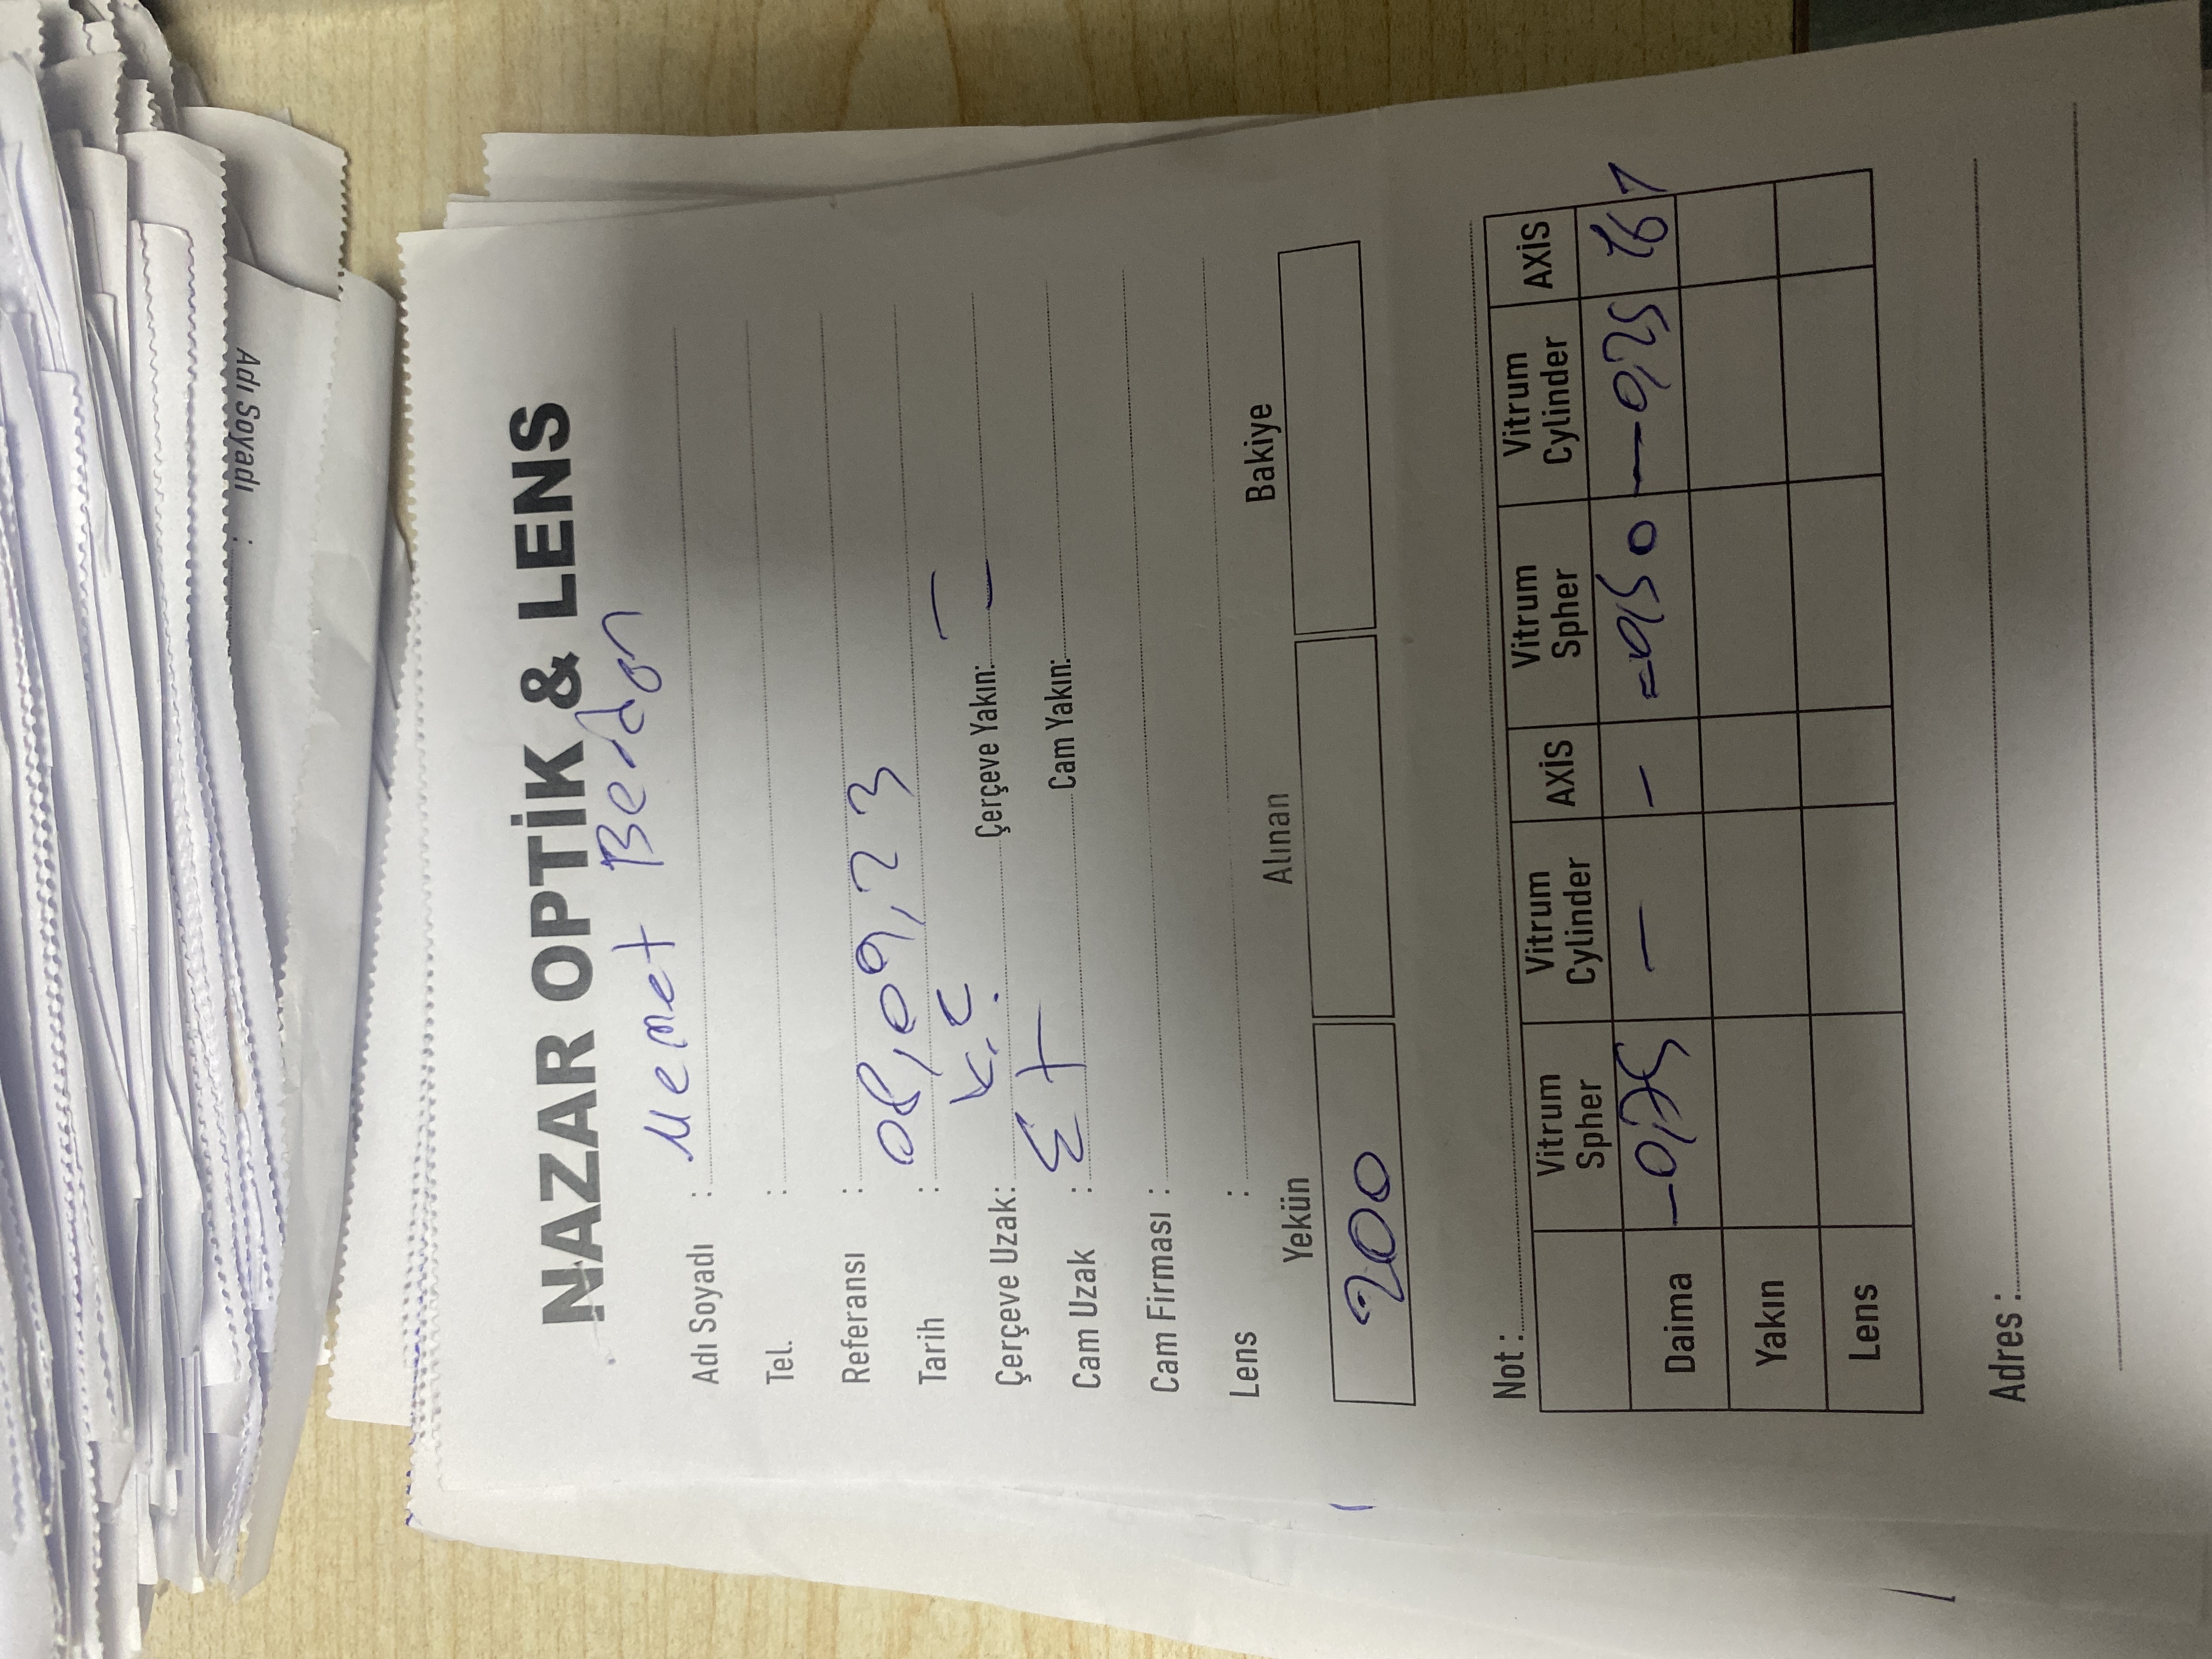 Adı Soyadı :
NAZAR OPTİK & LENS
Adı Soyadı : Memet Berdan
Tel. :
Referansı :
Tarih : 08,09,23
Çerçeve Uzak: K.Ç Çerçeve Yakın:
Cam Uzak : Cam Yakın:
Cam Firması :
Lens :
Yekün Alınan Bakiye
200
Not :
Vitrum Spher Vitrum Cylinder AXİS Vitrum Spher Vitrum Cylinder AXİS
Daima -0,75 - - -0,50 -0,25 161
Yakın
Lens
Adres :